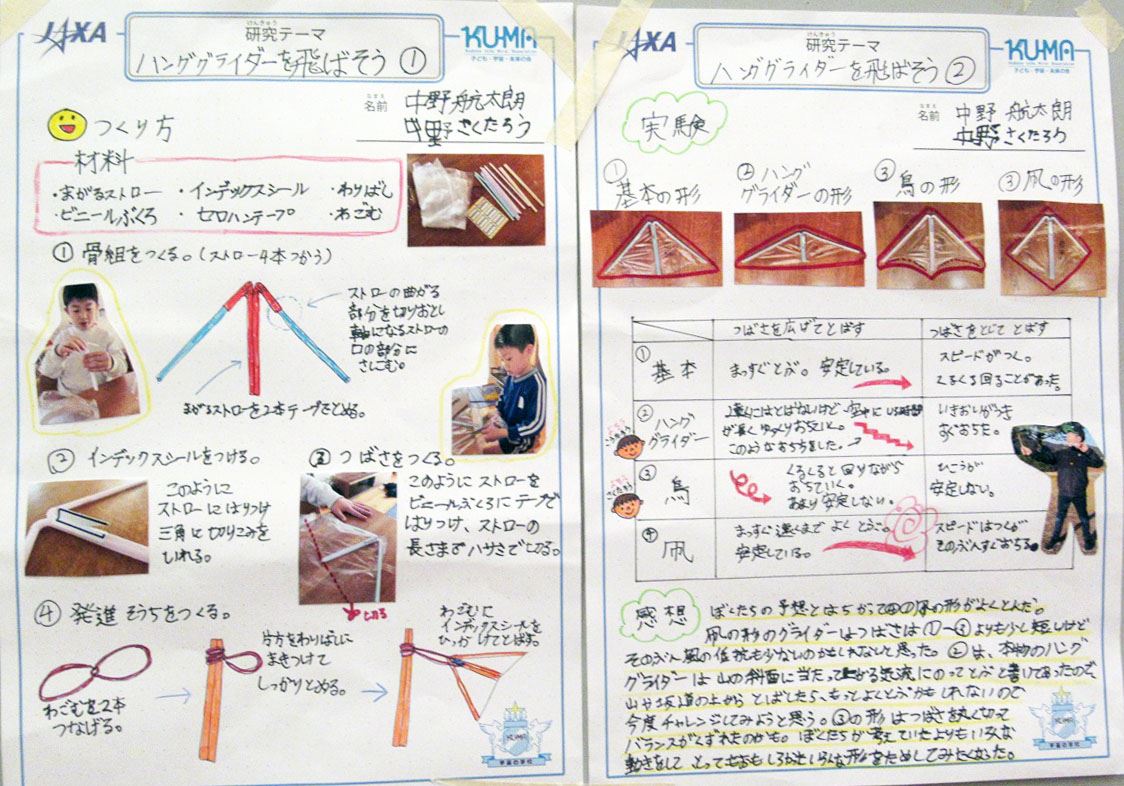 JAXA
けんきゅう
研究テーマ
ハンググライダーを飛ばそう ①
KU-MA
子ども・宇宙・未来の会
なまえ
名前
中野 航太朗
中野 さくたろう
つくり方
材料
・まがるストロー ・インデックスシール ・わりばし
・ビニールぶくろ ・セロハンテープ ・わごむ
① 骨組をつくる。(ストロー4本つかう)
ストローの曲がる
部分を切りおとし
軸になるストローの
口の部分に
さしこむ。
まがるストローを2本テープでとめる。
② インデックスシールをつける。
このように
ストローにはりつけ
三角に切りこみを
いれる。
③ つばさをつくる。
このようにストローを
ビニールぶくろにテープで
はりつけ、ストローの
長さまでハサミで切る。
切る
④ 発進そうちをつくる。
わごむを2本
つなげる。
片方をわりばしに
まきつけて
しっかりとめる。
わごむに
インデックスシールを
ひっかけてとばす。
KU-MA
宇宙の学校
JAXA
けんきゅう
研究テーマ
ハンググライダーを飛ばそう ②
KU-MA
子ども・宇宙・未来の会
なまえ
名前
中野 航太朗
中野 さくたろう
実験
① 基本の形
② ハンググライダーの形
③ 鳥の形
③ 凧の形
つばさを広げてとばす
つばさをとじてとばす
① 基本
まっすぐとぶ。安定している。
スピードがつく。
くるくる回ることがあった。
② ハンググライダー
遠くにはとばないけど 空中にいる時間
が長く ゆっくりおちていく。
このようなおちちました。
いきおいがつき
すぐおちた。
③ 鳥
くるくると回りながら
おちていく。
あまり安定しない。
ひこうが
安定しない。
④ 凧
まっすぐ遠くまでよくとぶ。
安定している。
スピードはつくが
そのぶんすぐおちる。
感想
ぼくたちの予想とはちがって④の凧の形がよくとんだ。
凧の形のグライダーはつばさは①〜③よりも少し短いけど
そのぶん風の抵抗も少ないのかもしれないと思った。②は、本物のハング
グライダーは山の斜面に当たって上がる気流にのってとぶと書いてあったので、
山や坂道の上からとばしたら、もっとよくとぶかもしれないので
今度チャレンジしてみようと思う。③の形はつばさを丸く切って
バランスがくずれたのかも。ぼくたちが考えていたよりもいろんな
動きをして とってもおもしろかったいろんな形をためしてみたくなった。
KU-MA
宇宙の学校